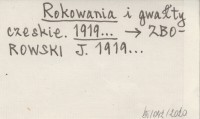 Rokowania i gwałty
czeskie. 1919... → ZBO-
ROWSKI J. 1919...